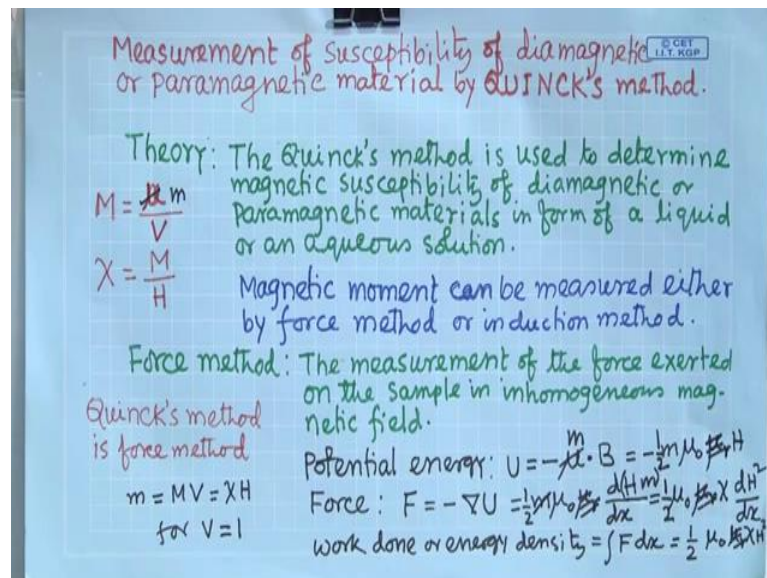 Measurement of susceptibility of diamagnetic
© CET
I.I.T. KGP
or paramagnetic material by QUINCK's method.
Theory: The Quinck's method is used to determine
magnetic susceptibility of diamagnetic or
paramagnetic materials in form of a liquid
or an aqueous solution.
M = m / V
χ = M / H
Magnetic moment can be measured either
by force method or induction method.
Force method: The measurement of the force exerted
on the sample in inhomogeneous mag-
netic field.
Quinck's method
is force method
m = MV = χH
for V = 1
Potential energy: U = -m · B = -½ m μ₀ H
Force: F = -∇U = ½ μ₀ d(Hm)/dx = ½ μ₀ χ dH²/dx
work done or energy density = ∫F dx = ½ μ₀ χH²